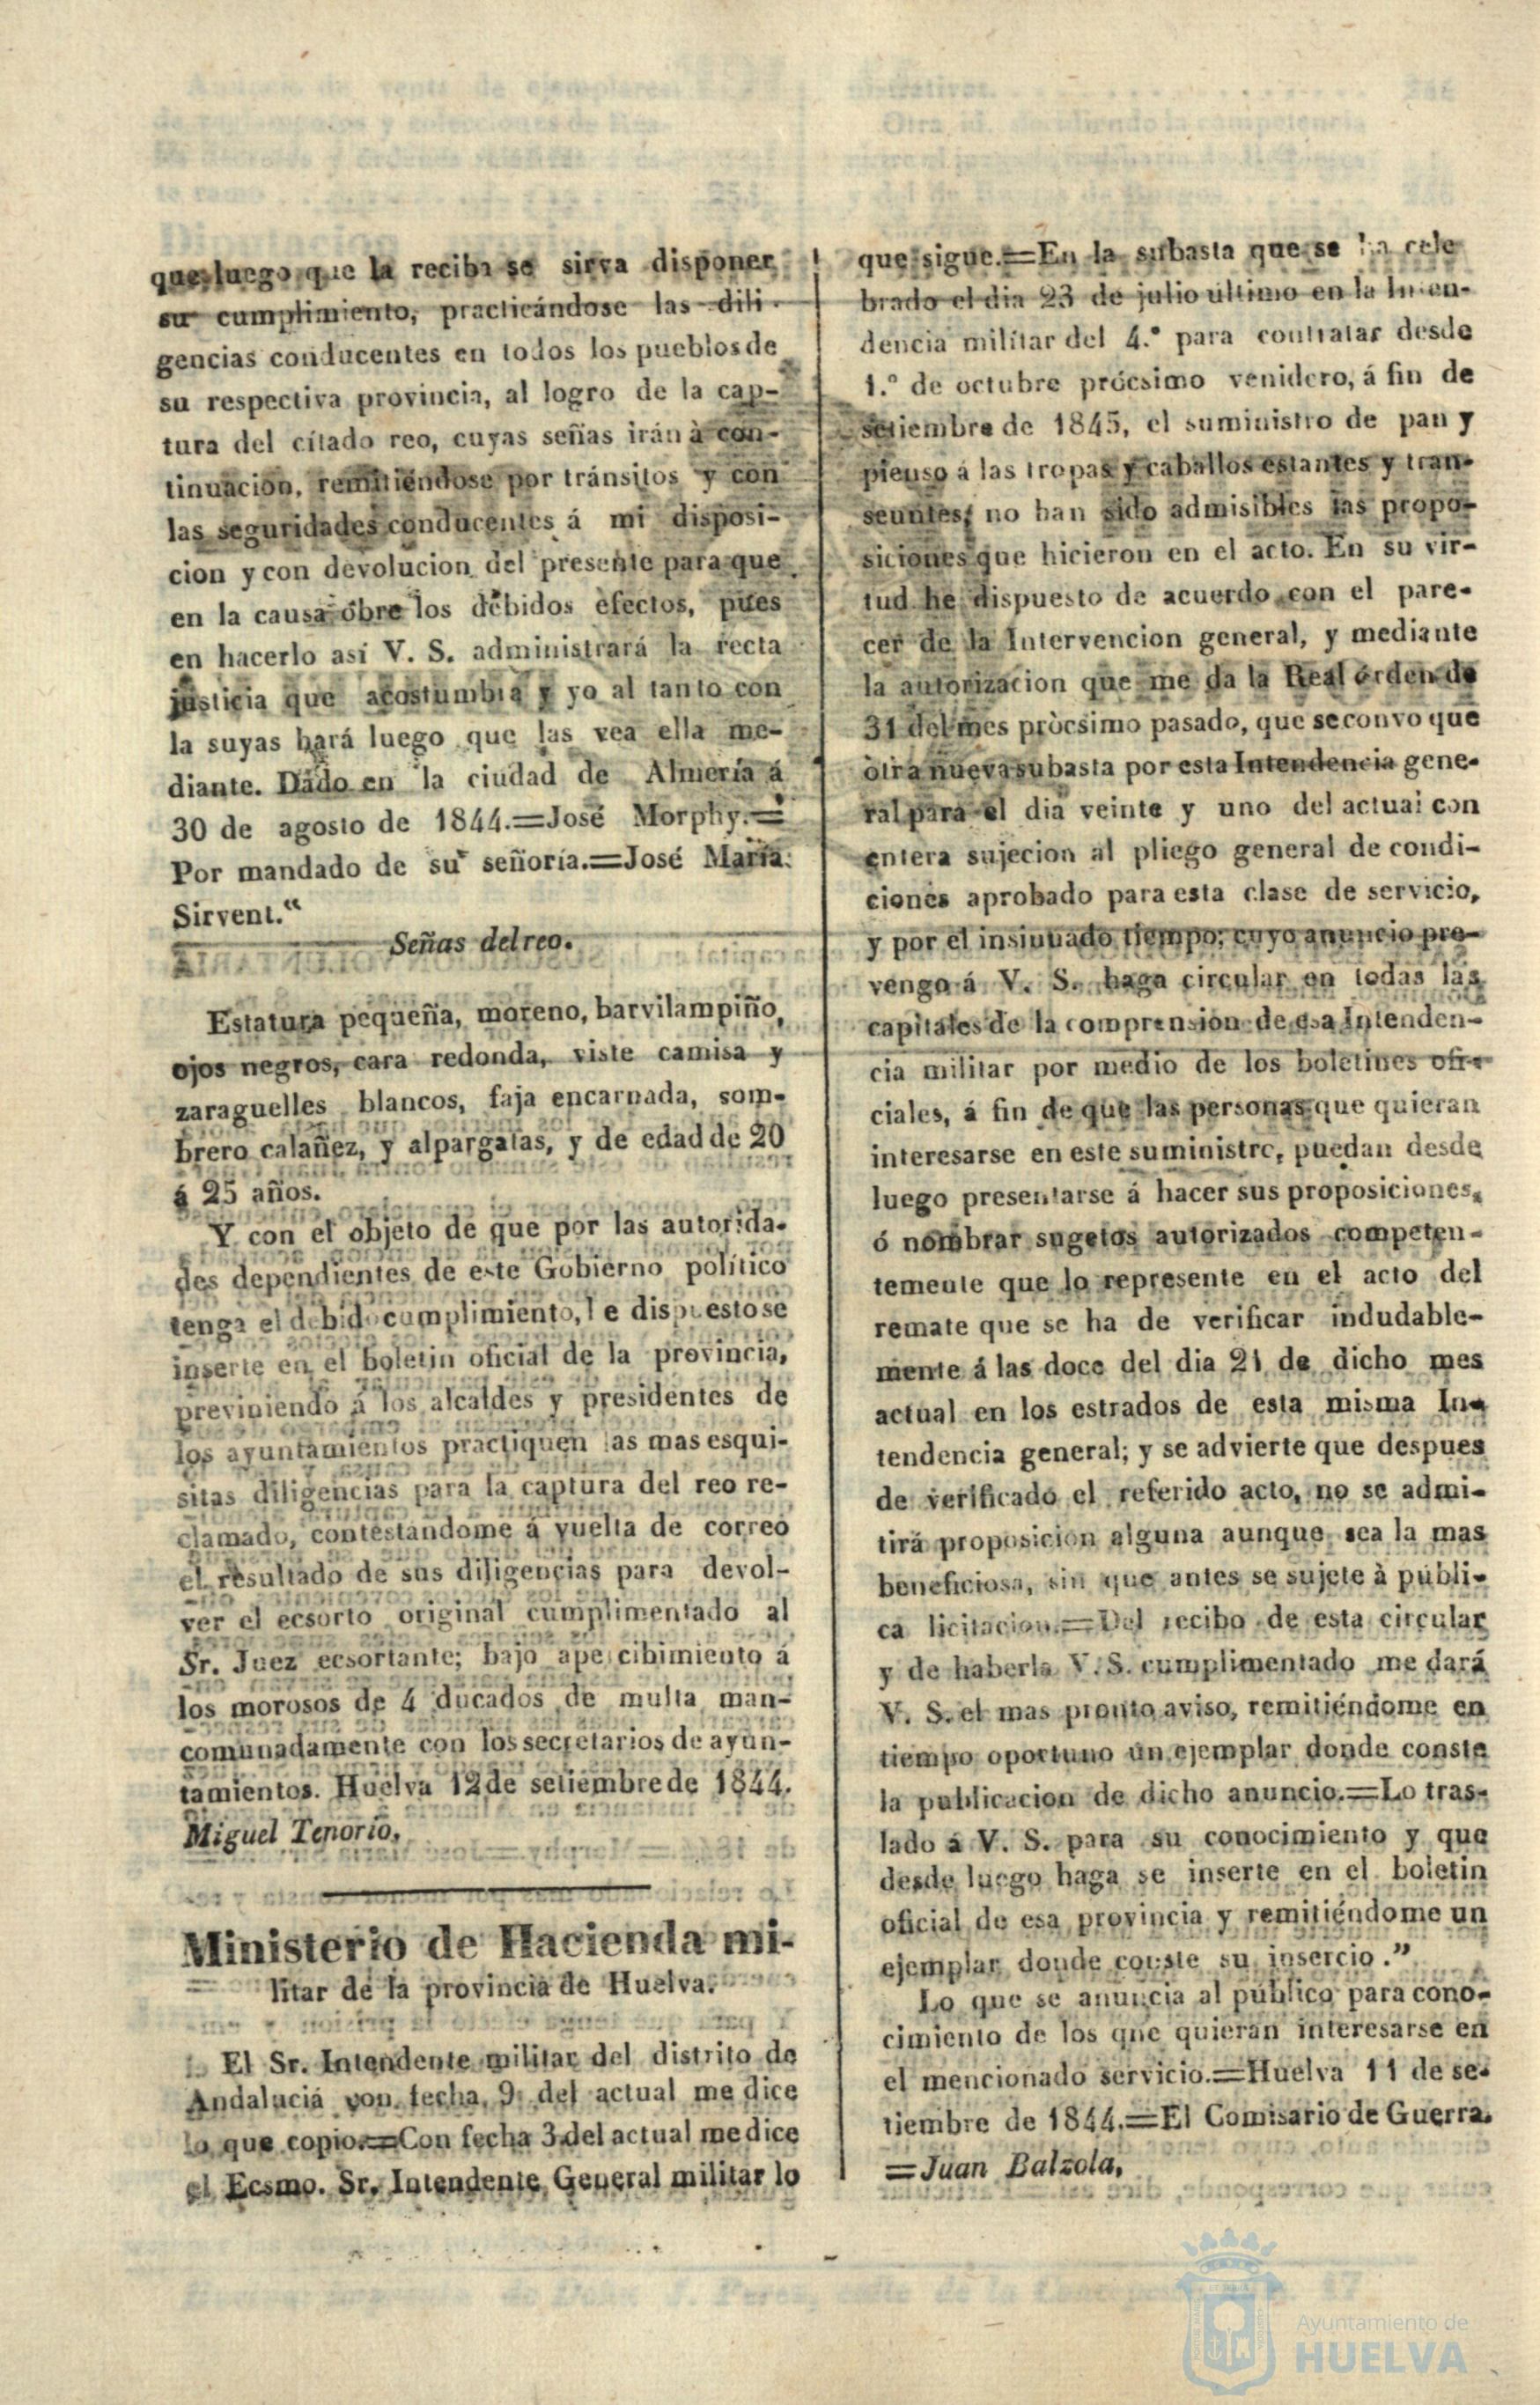 que luego que la reciba se sirva disponer
su cumplimiento, practicándose las dili-
gencias conducentes en todos los pueblos de
su respectiva provincia, al logro de la cap-
tura del citado reo, cuyas señas irán à con-
tinuacion, remitiéndose por tránsitos y con
las seguridades conducentes á mi disposi-
cion y con devolucion del presente para que
en la causa óbre los debidos efectos, pues
en hacerlo asi V. S. administrará la recta
justicia que acostumbra y yo al tanto con
la suyas hará luego que las vea ella me-
diante. Dado en la ciudad de Almería á
30 de agosto de 1844.=José Morphy.=
Por mandado de su señoría.=José María
Sirvent.“
Señas del reo.
Estatura pequeña, moreno, barvilampiño,
ojos negros, cara redonda, viste camisa y
zaraguelles blancos, faja encarnada, som-
brero calañez, y alpargatas, y de edad de 20
á 25 años.
Y con el objeto de que por las autorida-
des dependientes de este Gobierno político
tenga el debido cumplimiento, he dispuesto se
inserte en el boletin oficial de la provincia,
previniendo á los alcaldes y presidentes de
los ayuntamientos practiquen las mas esqui-
sitas diligencias para la captura del reo re-
clamado, contestándome á vuelta de correo
el resultado de sus diligencias para devol-
ver el ecsorto original cumplimentado al
Sr. Juez ecsortante; bajo apercibimiento á
los morosos de 4 ducados de multa man-
comunadamente con los secretarios de ayun-
tamientos. Huelva 12 de setiembre de 1844.
Miguel Tenorio.
Ministerio de Hacienda mi-
litar de la provincia de Huelva.
El Sr. Intendente militar del distrito de
Andaluciá von fecha 9 del actual me dice
lo que copio.=Con fecha 3 del actual me dice
el Ecsmo. Sr. Intendente General militar lo
que sigue.=En la subasta que se ha cele
brado el dia 23 de julio último en la Inten-
dencia militar del 4.º para contratar desde
1.º de octubre prócsimo venidero, á fin de
setiembre de 1845, el suministro de pan y
pienso á las tropas y caballos estantes y tran-
seuntes, no han sido admisibles las propo-
siciones que hicieron en el acto. En su vir-
tud he dispuesto de acuerdo con el pare-
cer de la Intervencion general, y mediante
la autorizacion que me da la Real órden de
31 del mes pròcsimo pasado, que se convoque
otra nueva subasta por esta Intendencia gene-
ral para el dia veinte y uno del actual con
entera sujecion al pliego general de condi-
ciones aprobado para esta clase de servicio,
y por el insinuado tiempo; cuyo anuncio pre-
vengo á V. S. haga circular en todas las
capitales de la comprension de esa Intenden-
cia militar por medio de los boletines ofi-
ciales, á fin de que las personas que quieran
interesarse en este suministro, puedan desde
luego presentarse á hacer sus proposiciones,
ó nombrar sugetos autorizados competen-
temente que lo represente en el acto del
remate que se ha de verificar indudable-
mente á las doce del dia 21 de dicho mes
actual en los estrados de esta misma In-
tendencia general; y se advierte que despues
de verificado el referido acto, no se admi-
tirá proposicion alguna aunque sea la mas
beneficiosa, sin que antes se sujete à públi-
ca licitacion.=Del recibo de esta circular
y de haberla V. S. cumplimentado me dará
V. S. el mas pronto aviso, remitiéndome en
tiempo oportuno un ejemplar donde conste
la publicacion de dicho anuncio.=Lo tras-
lado á V. S. para su conocimiento y que
desde luego haga se inserte en el boletin
oficial de esa provincia y remitiéndome un
ejemplar donde conste su insercio .”
Lo que se anuncia al público para cono-
cimiento de los que quieran interesarse en
el mencionado servicio.=Huelva 11 de se-
tiembre de 1844.=El Comisario de Guerra.
=Juan Balzola.
Ayuntamiento de
HUELVA